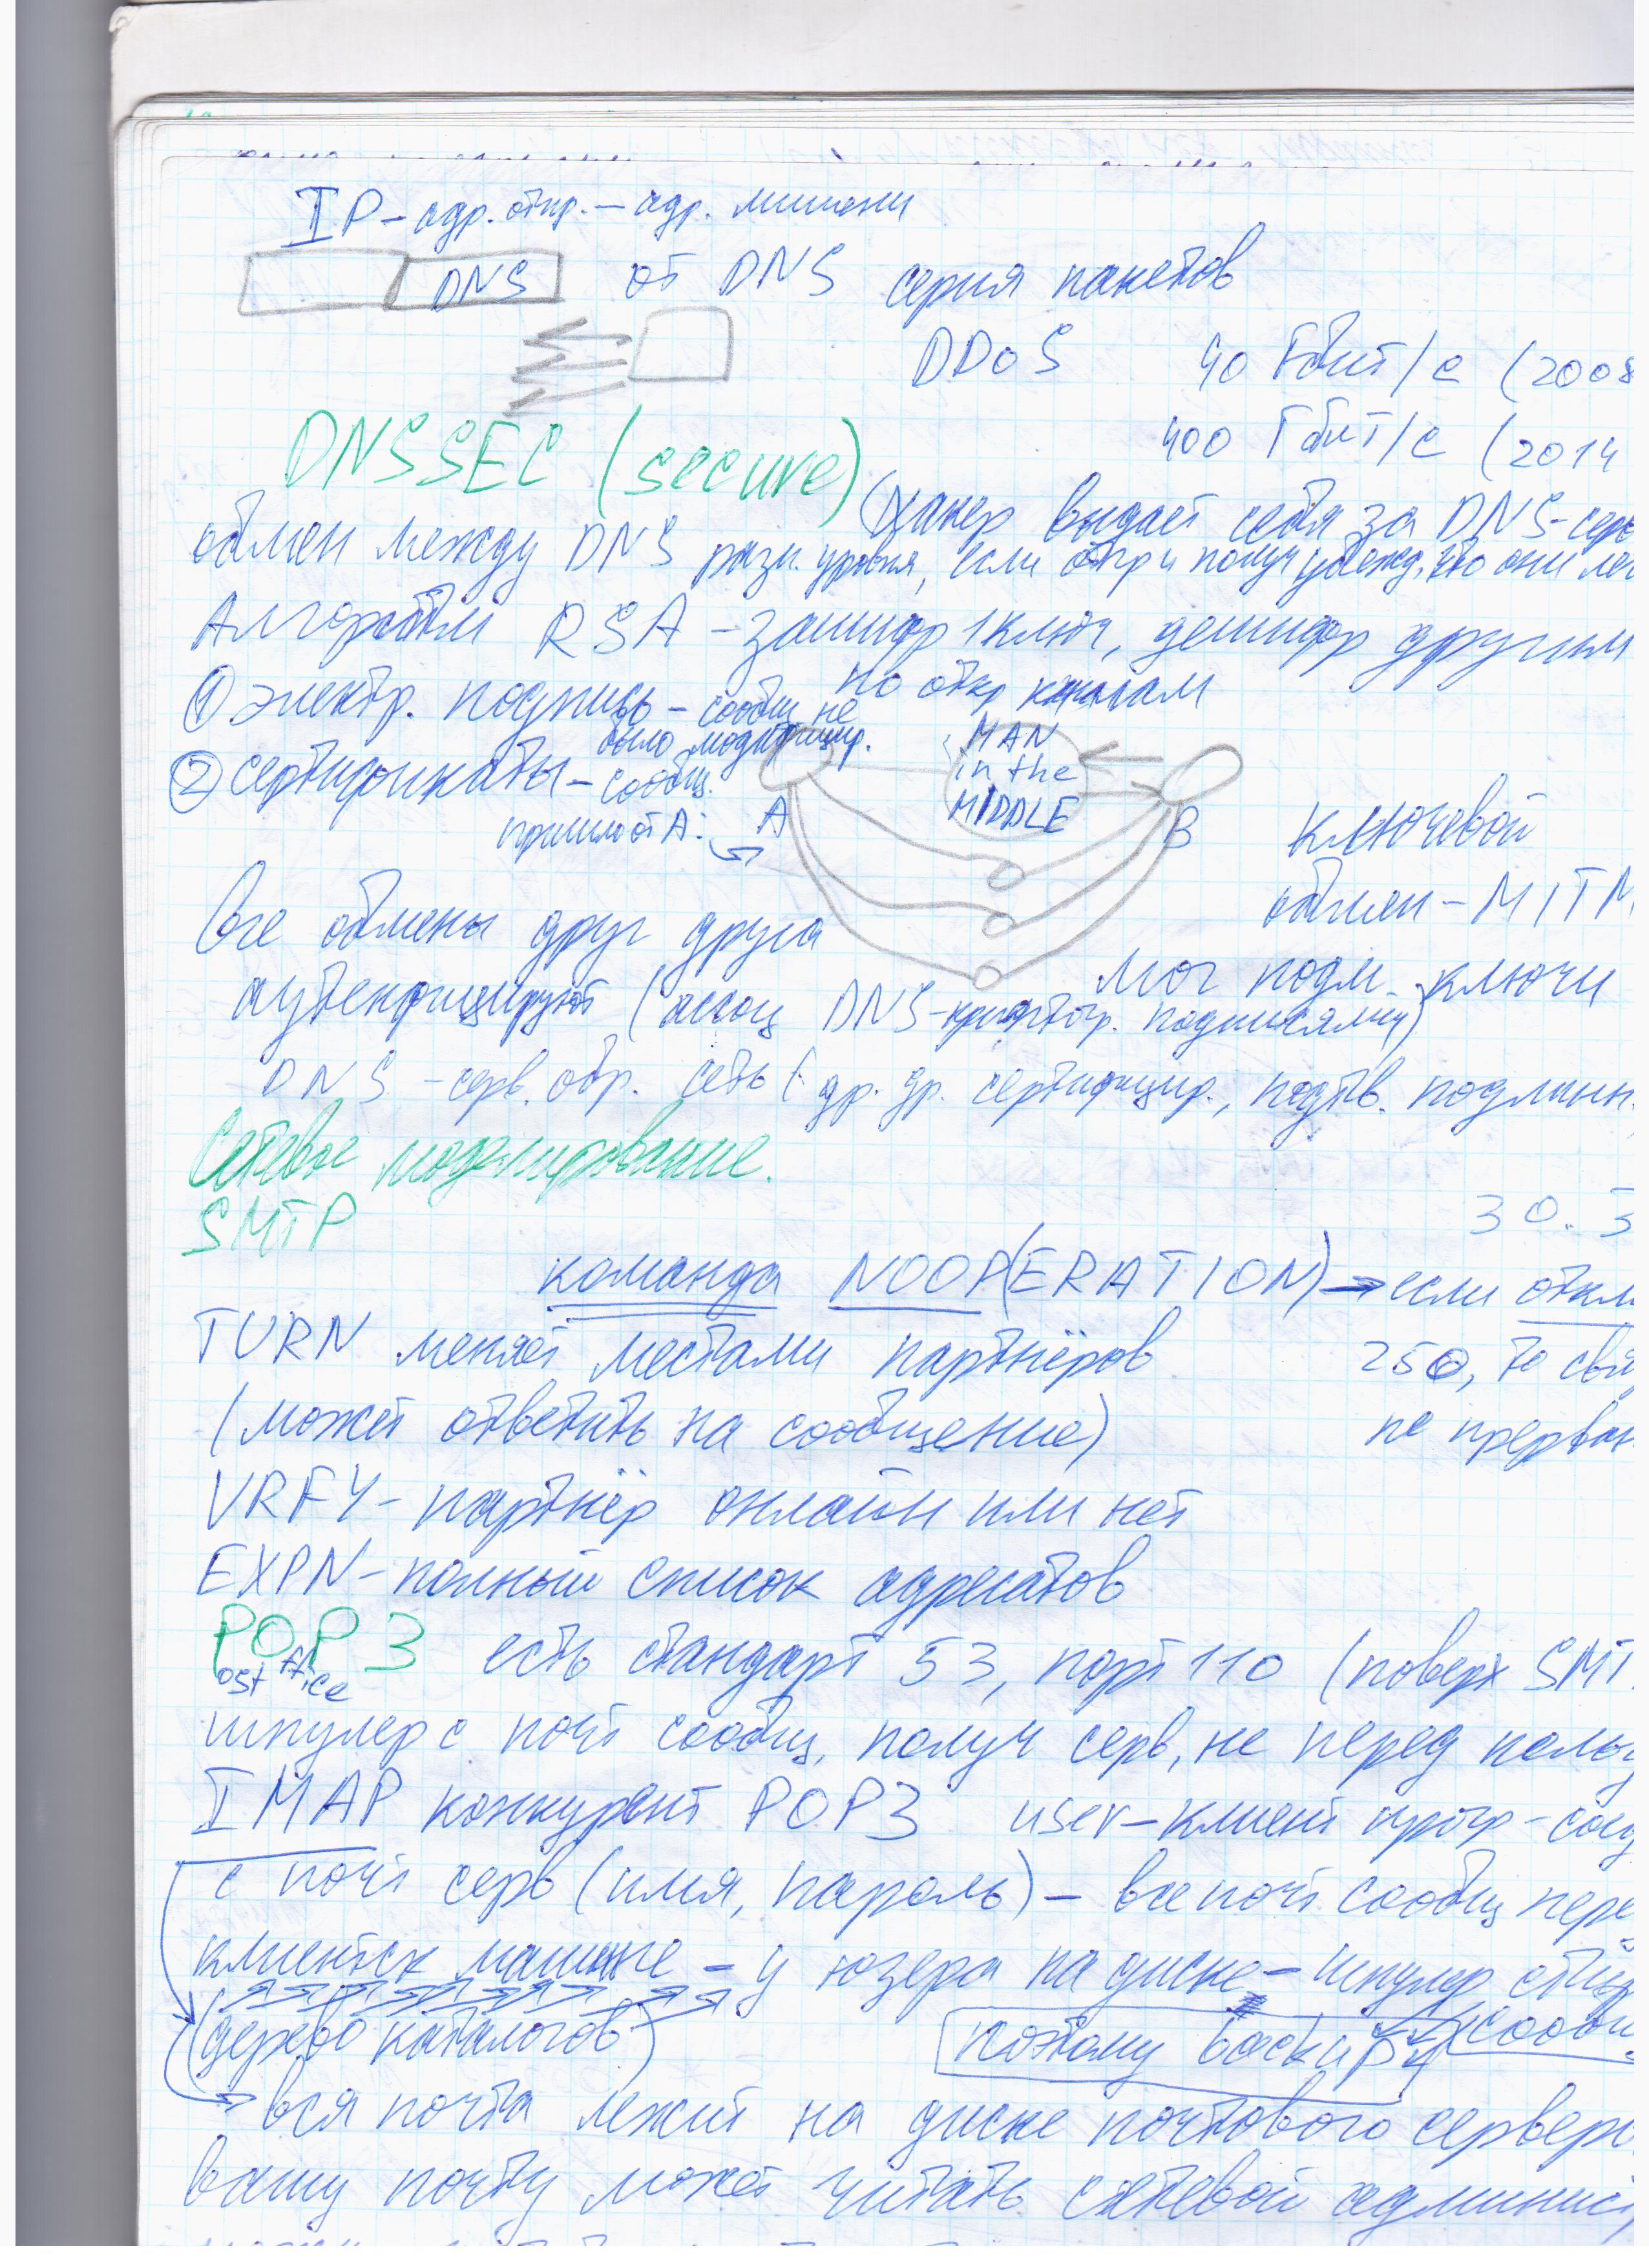 IP-адр. отпр. - адр. мишени
DNS от DNS серия пакетов
DDoS 40 Гбит/с (2008
400 Гбит/с (2014
DNSSEC (secure)
(хакер выдаёт себя за DNS-серв
обмен между DNS разн. уровня, если отпр и получ убежд, что они лег
Алгоритм RSA - зашифр 1 ключ, дешифр другим
по откр каналам
① электр. подпись - сообщ не
было модифицир.
② сертификаты - сообщ.
пришло от A:
A
MAN
in the
MIDDLE
B
ключевой
обмен - MITM
мог подм. ключи
Все обмены друг друга
аутенфицируют (ассоц DNS-криптогр. подписями)
DNS - серв. обр. сеть (др. др. сертифицир., подтв. подлинн.
Сетевое моделирование.
SMTP
30.3
команда NOOP(ERATION) → если откл
TURN меняет местами партнёров
250, то свя
(может ответить на сообщение)
не прерван
VRFY - партнёр онлайн или нет
EXPN - полный список адресатов
POP3 есть стандарт 53, порт 110 (поверх SMT
ost ffice
шпулер с почт сообщ, получ серв, не перед польз
IMAP конкурент POP3 user-клиент прогр - соед
с почт серв (имя, пароль) - все почт сообщ пере
клиентск машине - у юзера на диске - шпулер
(дерево каталогов)
поэтому
сообщ.
вся почта лежит на диске почтового сервера
вашу почту может читать сетевой админист